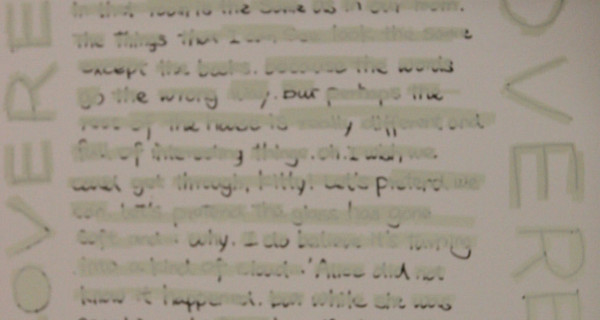 in that room is the same as in our room.
The things that I can see look the same
except the books. because the words
go the wrong way. but perhaps the
rest of the house is really different and
full of interesting things. oh. I wish, we
could get through, kitty! Let's pretend. we
can. let's pretend the glass has gone
soft and why. I do believe it's turning
into a kind of cloud. 'Alice did not
know it happened. but while she was
OVERE
OVERE